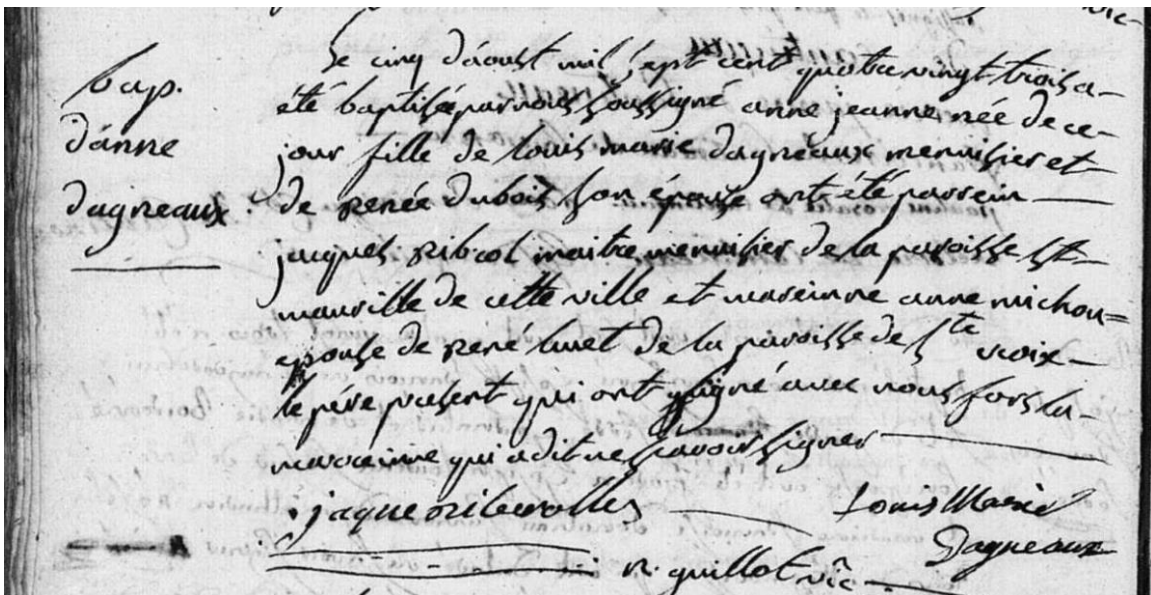 bap.
d'anne
dagneaux
Le cinq d'aoust mil sept cent quatre vingt trois a
été baptisée par nous soussigné anne jeanne née de ce
jour fille de louis marie dagneaux menuisier et
de renée dubois son épouse ont été parrein
jacques maitre menuisier de la paroisse St
maurille de cette ville et mareinne anne michou=
epouse de rené de la paroisse de Ste croix
le père présent qui ont signé avec nous fors la
mareinne qui a dit ne sçavoir signer
jaque
Louis Marie
Dagneaux
n. guillot vic